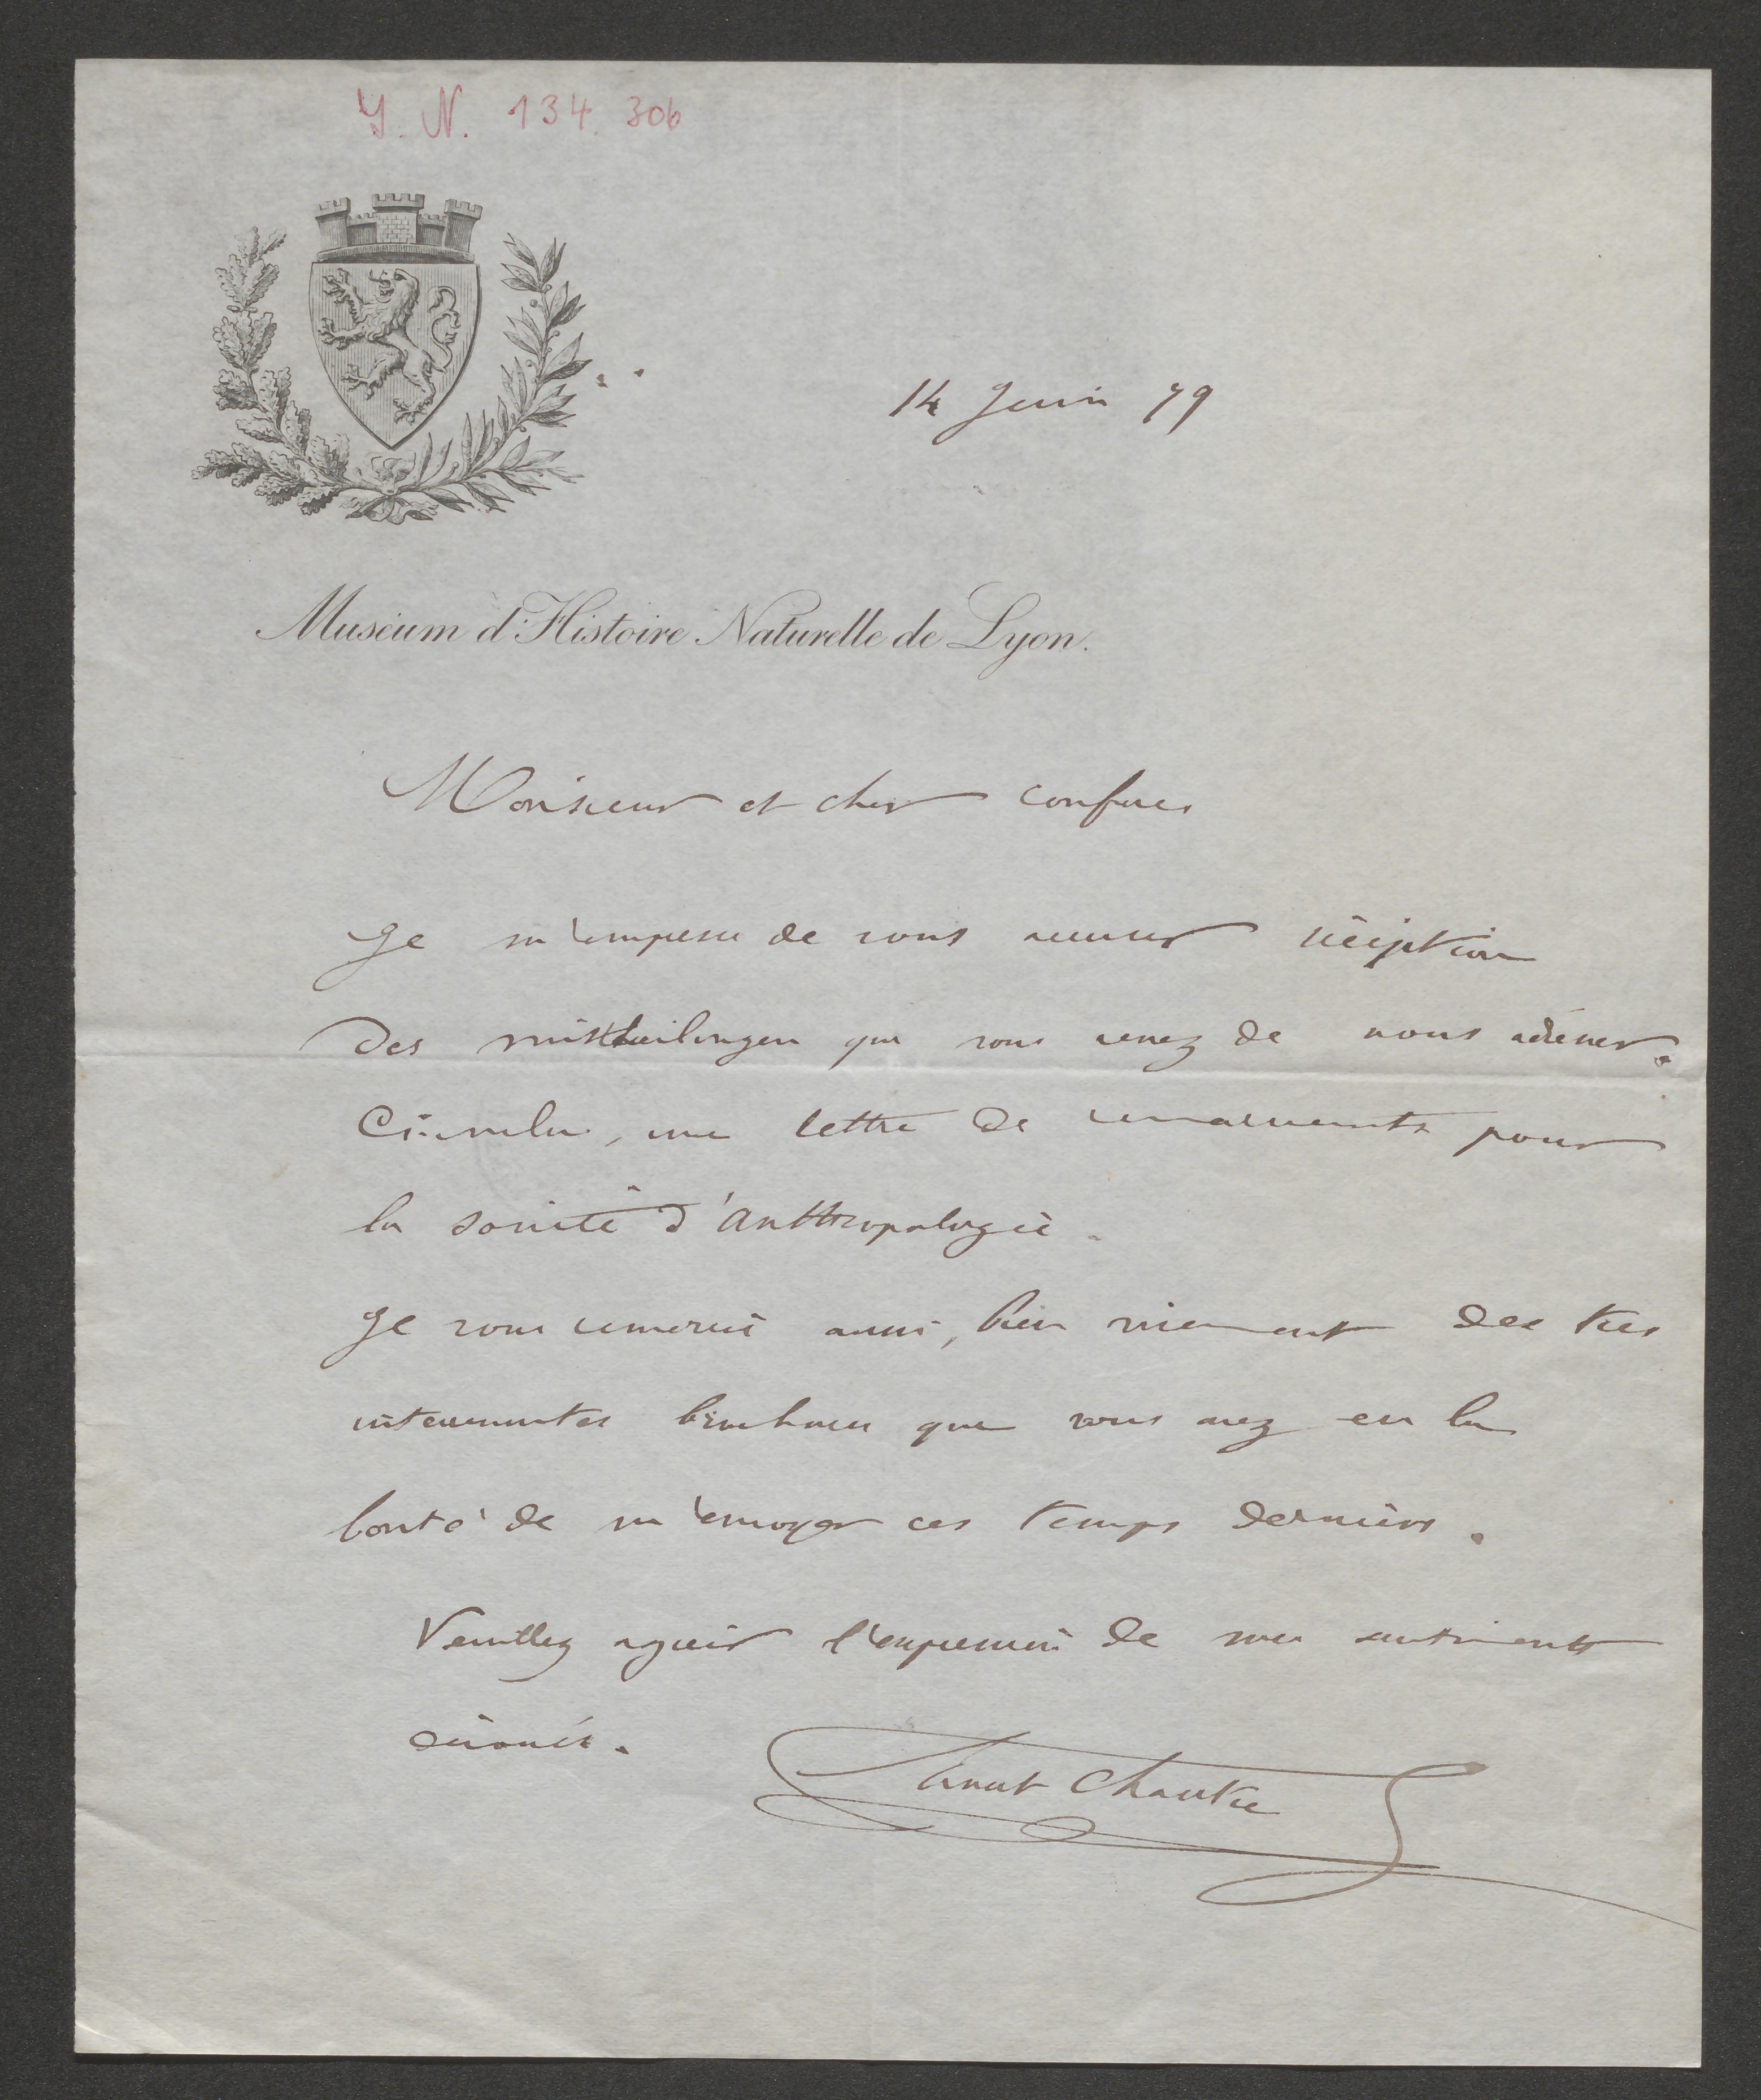 J. N. 134.306
14 Juin 79
Muséum d'Histoire Naturelle de Lyon.
Monsieur et cher confrere
Je m'empresse de vous accuser réception
des mittheilungen que vous venez de nous adresser.
Ci-inclus, une lettre de remerciements pour
la société d'Anthropologie.
Je vous remercie aussi, bien vivement des tres
interessantes brochures que vous avez eu la
bonté de m'envoyer ces temps derniers.
Veuillez agréer l'expression de mes sentiments
dévoués.
Ernest Chantre